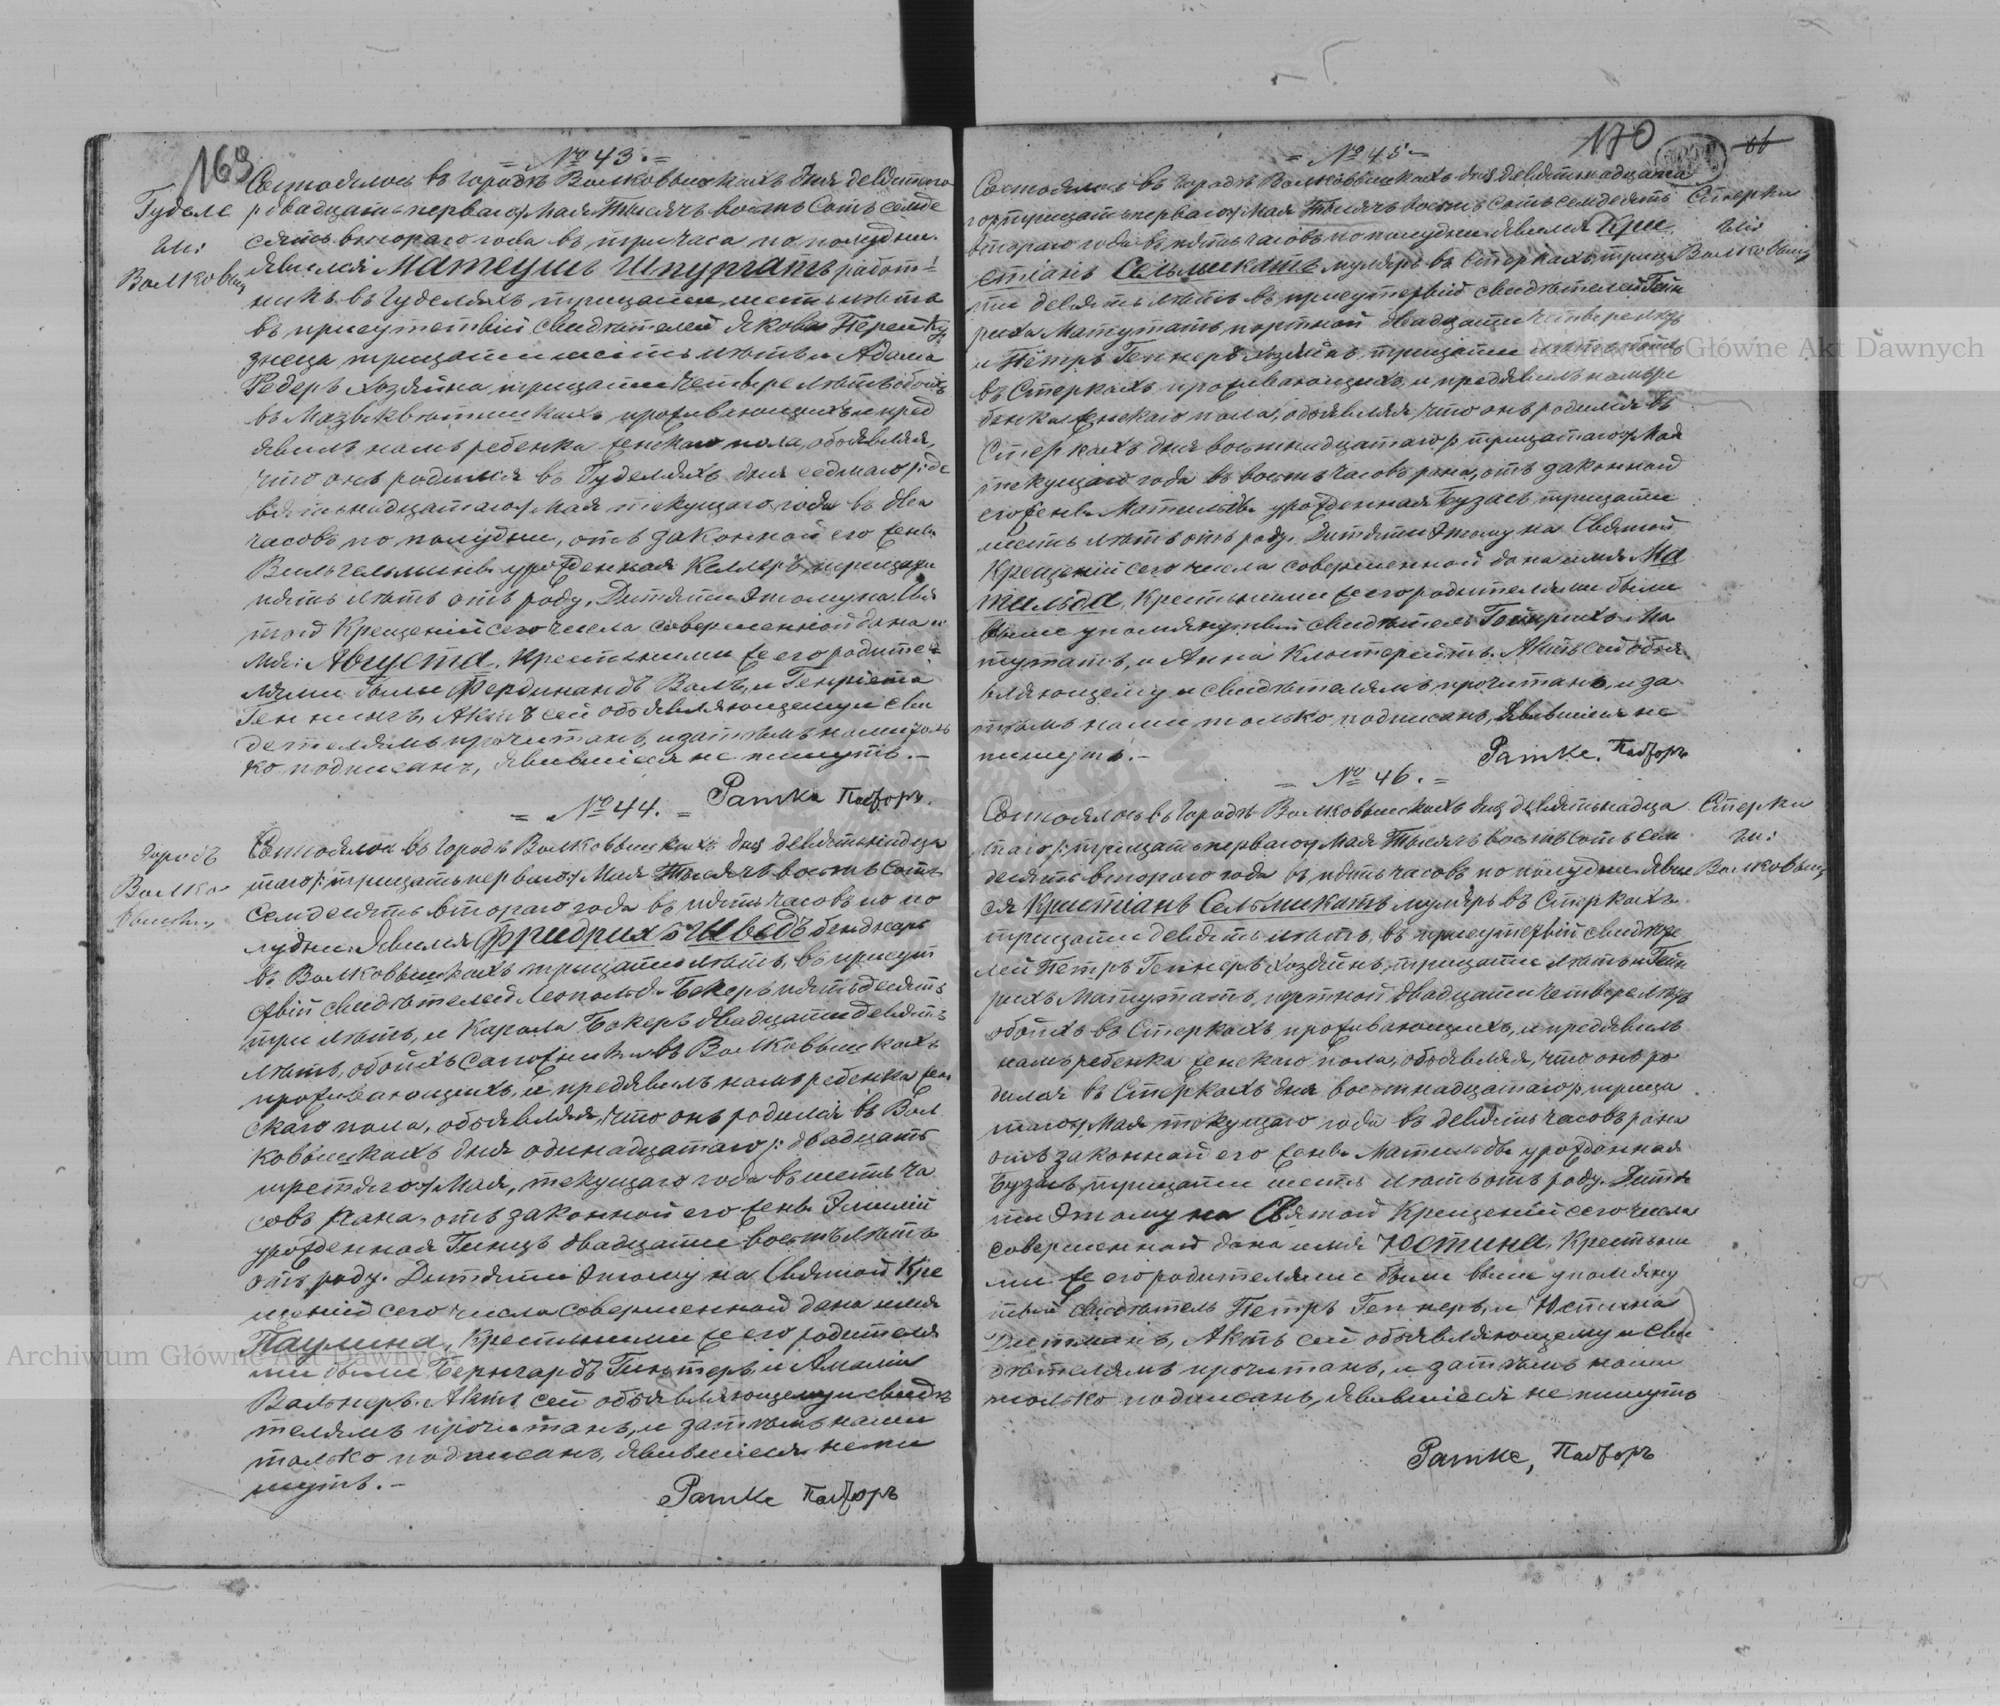 169
= № 43. =
Гуделе
ли:
Волковыш
Состоялось въ городѣ Волковышкахъ дня девятаго
/двадцать перваго/ Мая Тысяча восемь Сотъ семде
сятъ втораго года въ три часа по полудни.
Явился Матеушъ Шпургатъ работ=
никъ въ Гуделяхъ тридцати шесть лѣтъ
въ присутствіи свидѣтелей Якова Перей Ку
знеца тридцати шесть лѣтъ и Адама
Редеръ хозяина тридцати четыре лѣтъ обоихъ
въ проживающихъ и пред
явилъ намъ ребенка женскаго пола, объявляя,
что онъ родился въ Гуделяхъ дня седмаго /де
вятьнадцатаго/ Мая текущаго года въ два
часовъ по полудни, отъ законной его жены
Вильгельмины урожденная Келлеръ тридцати
пять лѣтъ отъ роду. Дитяти этому на Свя
томъ Крещеніи сего числа совершенной дана и
мя: Августа, Крестными же его родите=
лями были Фердинандъ Валъ, и Генріета
Геннингъ, Актъ сей объявляющему и сви
детелямъ прочитанъ, и затѣмъ нами толь
ко подписанъ, явившіеся не пишутъ. —
Ратке Пасторъ.
= № 44. =
городъ
Волко
вышки.
Состоялось въ городѣ Волковышкахъ дня девятьнадца
таго /:тридцать перваго:/ Мая Тысяча восемь сотъ
семдесятъ втораго года въ пять часовъ по по
лудни. Явился Фридрихъ Шведъ бенднаръ
въ Волковышкахъ тридцати лѣтъ, въ присут
ствіи свидѣтелей Леопольда Бекеръ пятьдесятъ
три лѣтъ, и Карола Бекеръ двадцати девять
лѣтъ, обоихъ сапожники въ Волковышкахъ
проживающихъ, и предявилъ намъ ребенка жен
скаго пола, объявляя, что онъ родился въ Вол
ковышкахъ дня одинадцатаго /: двадцать
третяго:/ Мая, текущаго года въ шесть ча
совъ рана, отъ законной его жены Эмиліи
урожденная Гинцъ двадцати восемь лѣтъ
отъ роду. Дитяти этому на Святой Кре
щеніи сего числа совершенной дана имя
Паулина, Крестными же его родителя
ми были Бернгардъ Гинтеръ, и Амалія
Вальнеръ. Актъ сей объявляющему и свидѣ
телямъ прочитанъ, и затѣмъ нами
только подписанъ, явившіеся не пи
шутъ. —
Ратке Пасторъ
170
= № 45 =
Стерки
или
Волковыш
Состоялось въ городѣ Волковышкахъ дня девятьнадцата
го /тридцать перваго/ Мая Тысяча восемь сотъ семдесятъ
втораго года въ пять часовъ по полудни. Явился Кри
стіанъ Сельмикатъ мулеръ въ Стеркахъ, тридца
ти девять лѣтъ въ присутствіи свидѣтелей Гейн
риха Матутатъ портной двадцати четыре лѣтъ
и Петръ Геннеръ хозяинъ тридцати лѣтъ обоихъ
въ Стеркахъ проживающихъ, и предявилъ намъ ре
бенка женскаго пола, объявляя, что онъ родился въ
Стеркахъ дня восемнадцатаго / тридцатаго/ Мая
текущаго года въ восемь часовъ рана, отъ законной
его жены Матильды урожденная Бузасъ тридцати
шесть лѣтъ отъ роду. Дитяти этому на Святой
Крещеніи сего числа совершенной дана имя Ма
тильда, Крестными же его родителями были
выше упомянутый свидѣтель Гейнрихъ Ма
тутатъ, и Анна Клостерейтъ. Актъ сей объя
вляющему и свидѣтелямъ прочитанъ, и за
тѣмъ нами только подписанъ, явившіеся не
пишутъ. —
Ратке. Пасторъ
= № 46. =
Стерки
ли:
Волковыш
Состоялось въ городѣ Волковышкахъ дня девятьнадца
таго /: тридцать перваго:/ Мая Тысяча восемь сотъ сем
десятъ втораго года въ пять часовъ по полудни. Явил
ся Кристіанъ Сельмикатъ мулеръ въ Стеркахъ
тридцати девять лѣтъ, въ присутствіи свидѣте
лей Петръ Геннеръ хозяинъ, тридцати лѣтъ и Гейн
рихъ Матутатъ, портной двадцати четыре лѣтъ
обоихъ въ Стеркахъ проживающихъ, и предявилъ
намъ ребенка женскаго пола, объявляя, что онъ ро
дился въ Стеркахъ дня восемнадцатаго /: тридца
таго:/ Мая текущаго года въ девять часовъ рана
отъ законной его жены Матильды урожденная
Бузасъ, тридцати шесть лѣтъ отъ роду. Дитя
ти этому на Святой Крещеніи сего числа
совершенной дана имя Юстина, Крестны
ми же его родителями были выше упомяну
тый свидѣтель Петръ Геннеръ, и Юстина
Дитманъ, Актъ сей объявляющему и сви
дѣтелямъ прочитанъ, и затѣмъ нами
только подписанъ, явившіеся не пишутъ
Ратке, Пасторъ
Archiwum Główne Akt Dawnych
Archiwum Główne Akt Dawnych